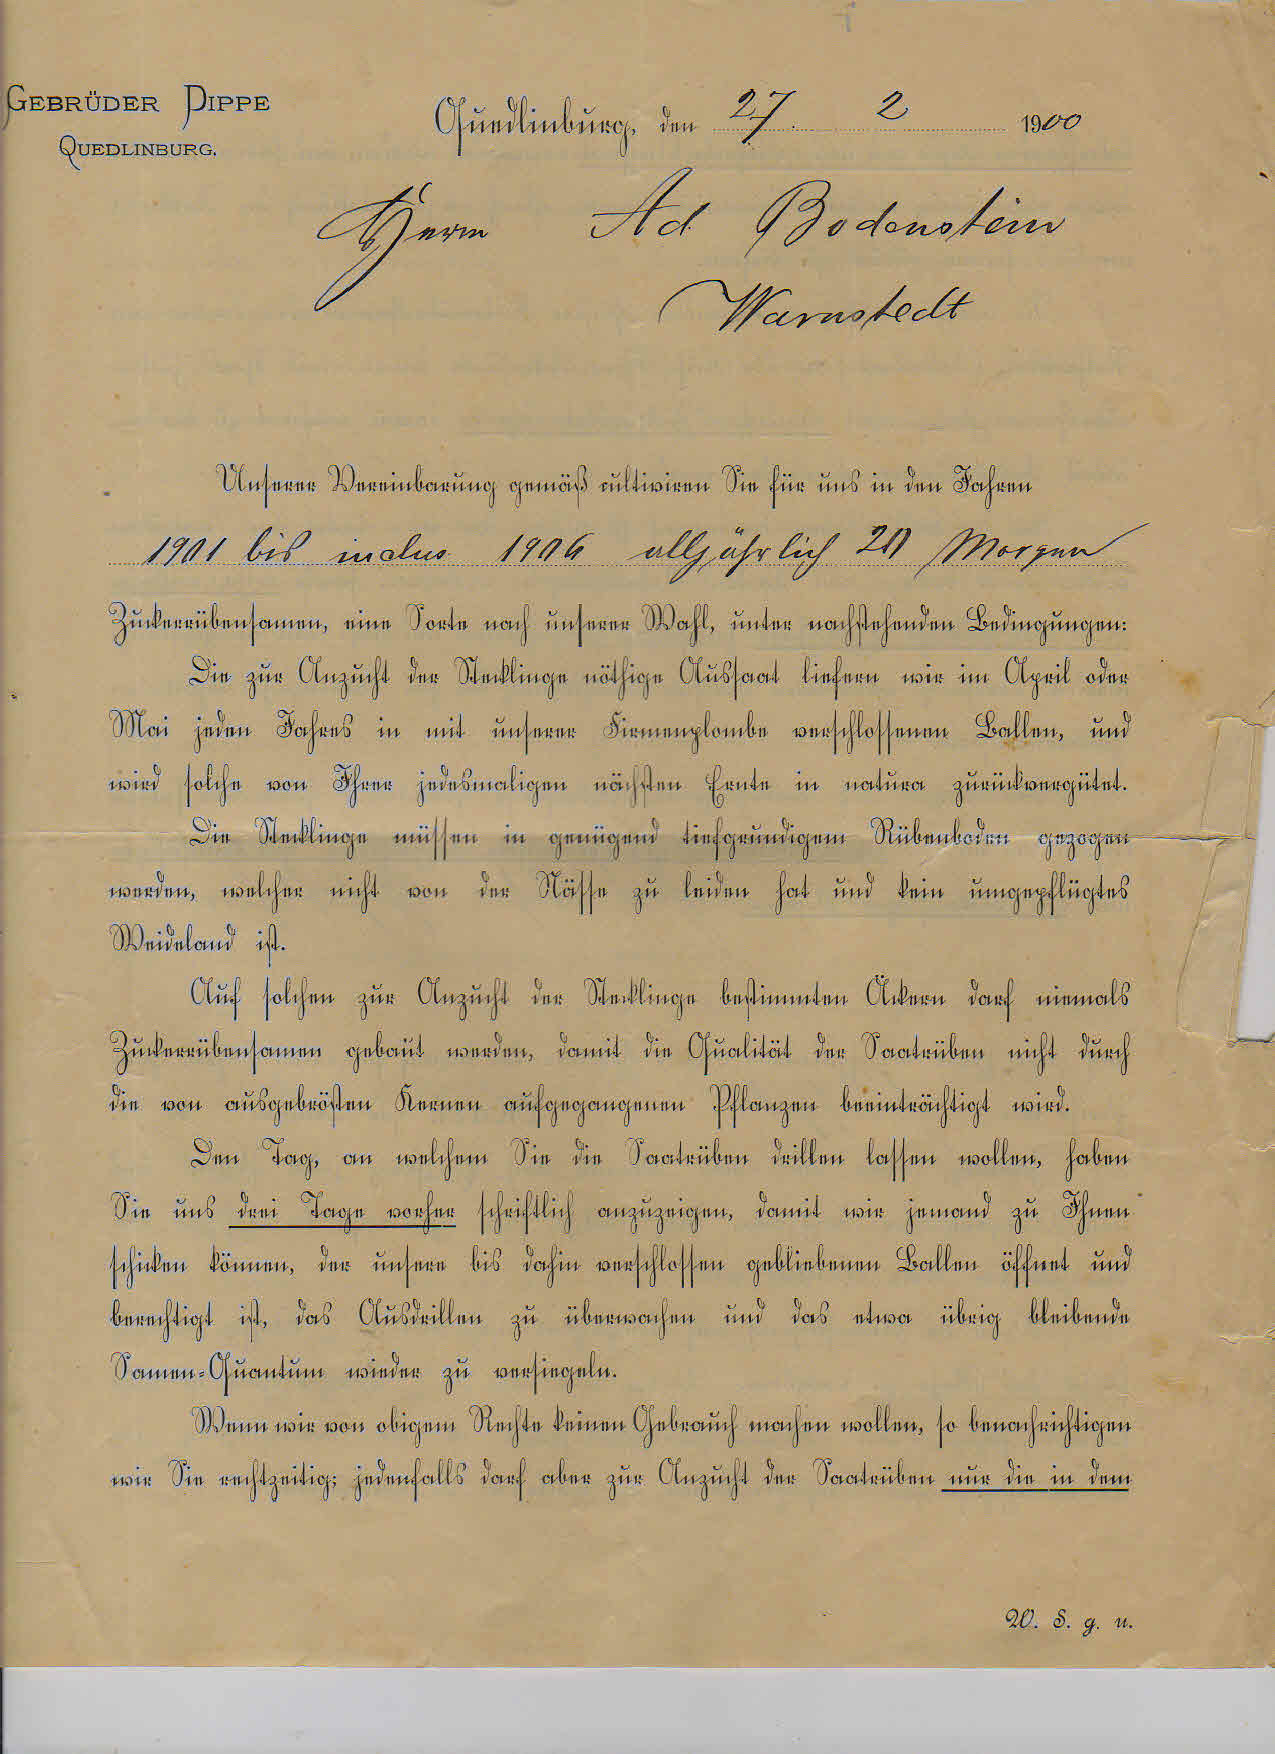 GEBRÜDER DIPPE
QUEDLINBURG.
Quedlinburg, den 27. 2 1900
Herrn Ad Bodenstein
Warnstedt
Unserer Vereinbarung gemäß cultiviren Sie für uns in den Jahren
1901 bis inclus. 1906 alljährlich 20 Morgen
Zuckerrübensamen, eine Sorte nach unserer Wahl, unter nachstehenden Bedingungen:
Die zur Anzucht der Stecklinge nöthige Aussaat liefern wir im April oder
Mai jeden Jahres in mit unserer Firmenplombe verschlossenen Ballen, und
wird solche von Ihrer jedesmaligen nächsten Ernte in natura zurückvergütet.
Die Stecklinge müssen in genügend tiefgründigem Rübenboden gezogen
werden, welcher nicht von der Nässe zu leiden hat und kein umgepflügtes
Weideland ist.
Auf solchen zur Anzucht der Stecklinge bestimmten Äckern darf niemals
Zuckerrübensamen gebaut werden, damit die Qualität der Saatrüben nicht durch
die von ausgebrösten Kernen aufgegangenen Pflanzen beeinträchtigt wird.
Den Tag, an welchem Sie die Saatrüben drillen lassen wollen, haben
Sie uns drei Tage vorher schriftlich anzuzeigen, damit wir jemand zu Ihnen
schicken können, der unsere bis dahin verschlossen gebliebenen Ballen öffnet und
berechtigt ist, das Ausdrillen zu überwachen und das etwa übrig bleibende
Samen-Quantum wieder zu versiegeln.
Wenn wir von obigem Rechte keinen Gebrauch machen wollen, so benachrichtigen
wir Sie rechtzeitig; jedenfalls darf aber zur Anzucht der Saatrüben nur die in dem
W. S. g. u.